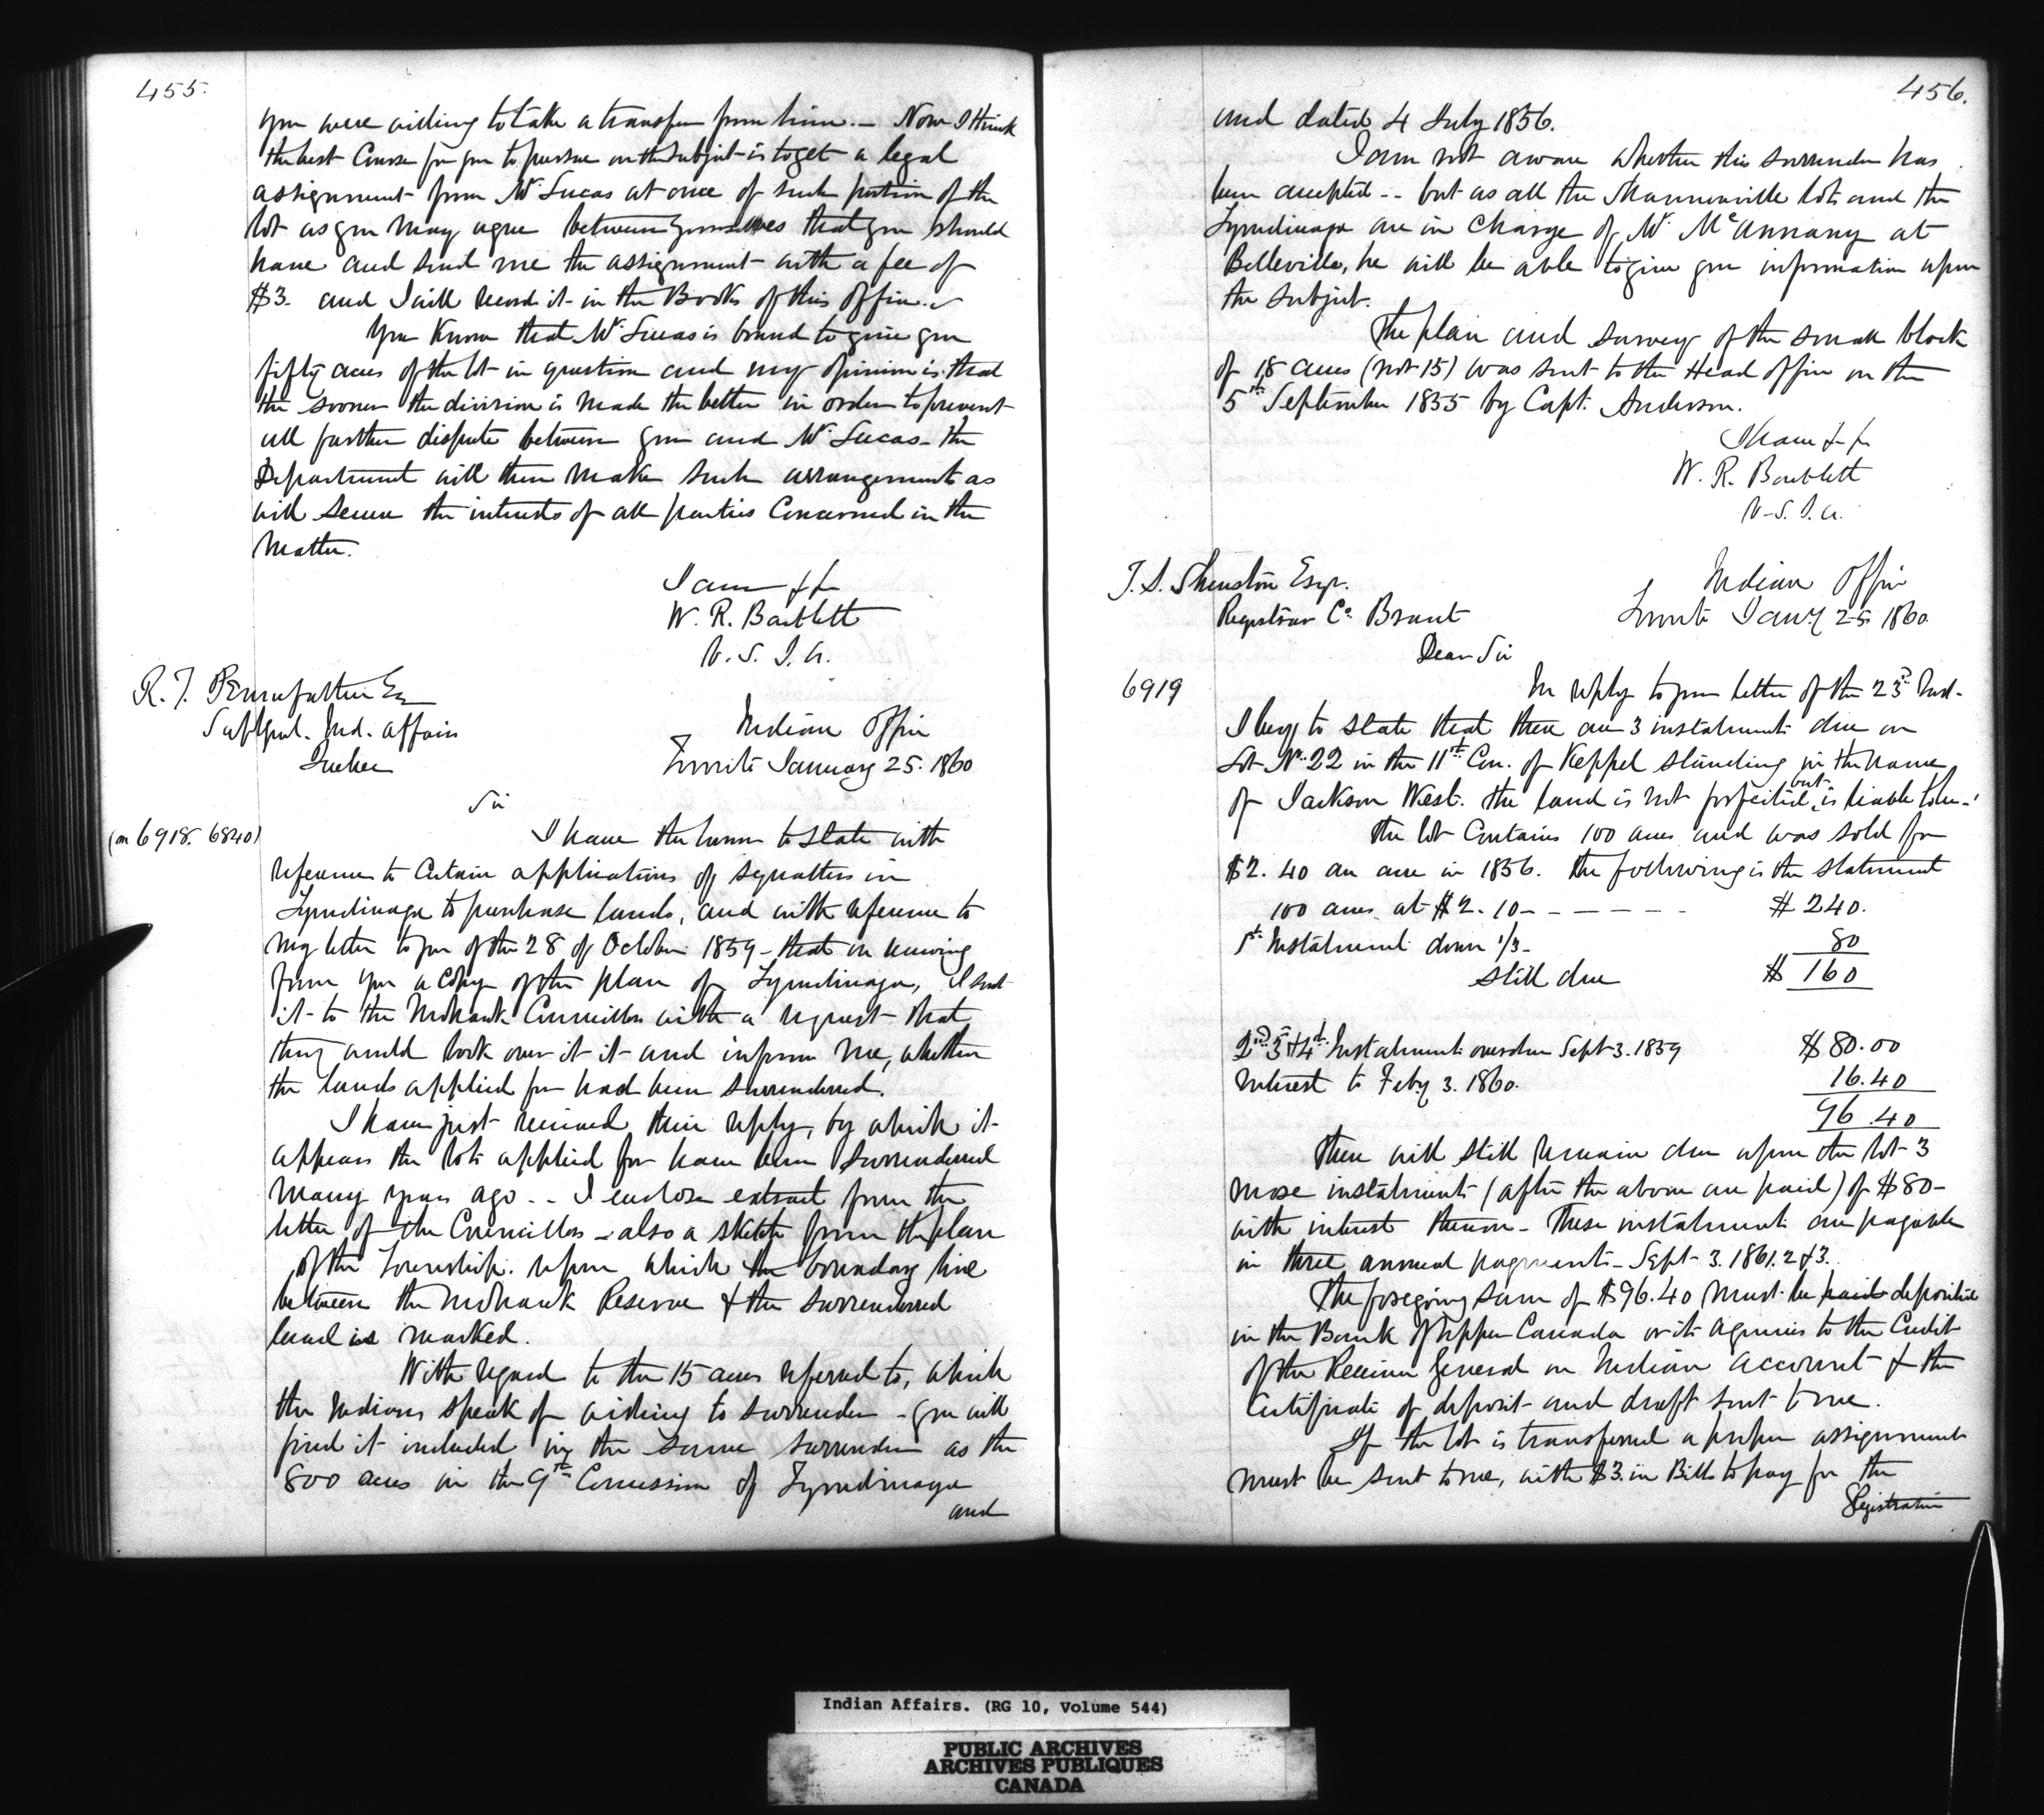 455.
you were willing to take a transfer from him. – Now I think
the best Course for you to pursue on the subject is to get a legal
assignment from Mr Lucas at once of such portion of the
lot as you may agree between yourselves that you should
have and send me the assignment with a fee of
$3. and I will record it in the Books of this office.
You Know that Mr Lucas is bound to give you
fifty acres of the lot in question and my opinion is that
the sooner the division is made the better in order to prevent
all further dispute between you and Mr Lucas – the
Department will then make such arrangements as
will secure the interests of all parties Concerned in the
Matter.
I am &c
W. R. Bartlett
V. S. I. A.
R. T. Pennefather Esq
Suptgenl. Ind. Affairs
Quebec
Indian Office
Toronto January 25. 1860
Sir
(on 6918. 6840)
I have the honor to state with
reference to Certain applications of squatters in
Tyendinaga to purchase lands, and with reference to
my letter to you of the 28 of October 1859 – that on receiving
from you a copy of the plan of Tyendinaga, I sent
it to the Mohawk Councillors with a request that
they would look over it it and inform me, whether
the lands applied for had been surrendered.
I have just received their reply, by which it
appears the lots applied for have been surrendered
many years ago. – I enclose extract from the
letter of the Councillors – also a sketch from the plan
of the Township. upon which the boundary line
between the Mohawk Reserve & the surrendered
land is marked.
With regard to the 15 acres referred to, which
the Indians speak of wishing to surrender – you will
find it included in the same surrender as the
800 acres in the 9th Concession of Tyendinaga
and
456.
and dated 4 July 1856.
I am not aware whether this surrender has
been accepted – but as all the Shannonville lots and the
Tyendinaga are in charge of Mr McAnnany at
Belleville, he will be able to give you information upon
the subject.
The plan and survey of the small block
of 18 acres (not 15) was sent to the Head office on the
5th September 1855 by Capt. Anderson.
I have &c
W. R. Bartlett
V. S. I. A.
T. S. Shenston Esqr.
Registrar Co. Brant
Indian Office
Toronto Jany 25. 1860
Dear Sir
6919
In reply to your letter of the 23d Inst.
I beg to state that there are 3 instalments due on
Lot No 22 in the 11th Con. of Keppel standing in the name
of Jackson West. the land is not forfeited but is liable to be.
The lot Contains 100 acres and was sold for
$2. 40 an acre in 1856. the following is the statement
100 acres at $2. 10 - - - - - - $ 240.
1st Instalment down 1/3 – 80
still due $ 160
2nd 3d & 4th Instalments overdue Sept 3. 1859 $ 80.00
Interest to Feby 3. 1860. 16.40
96.40
There will still remain due upon the lot 3
more instalments (after the above are paid) of $80 –
with interest thereon – These instalments are payable
in three annual payments – Sept 3. 1861. 2 & 3.
The foregoing sum of $96.40 must be paid deposited
in the Bank of Upper Canada or its agencies to the Credit
of the Receiver General on Indian account & the
Certificate of deposit and draft sent to me.
If the lot is transferred a proper assignment
must be sent to me, with $3. in Bills to pay for the
Registration
Indian Affairs. (RG 10, Volume 544)
PUBLIC ARCHIVES
ARCHIVES PUBLIQUES
CANADA